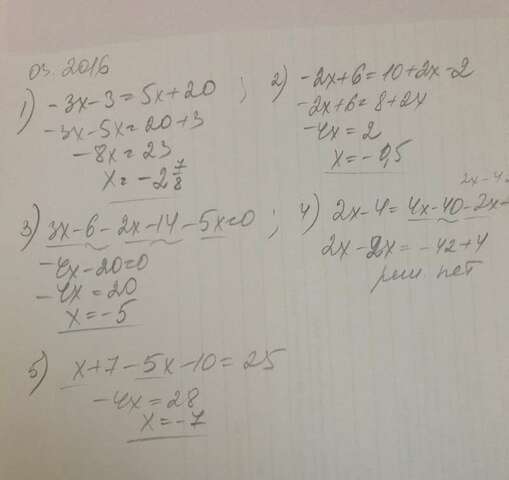 03. 2016
1) -3x-3=5x+20 ;
-3x-5x=20+3
-8x=23
x=-2 7/8
2) -2x+6=10+2x-2
-2x+6=8+2x
-4x=2
x=-0,5
3) 3x-6-2x-14-5x=0 ;
-4x-20=0
-4x=20
x=-5
2x-4
4) 2x-4=4x-40-2x-
2x-2x=-42+4
реш нет
5) x+7-5x-10=25
-4x=28
x=-7